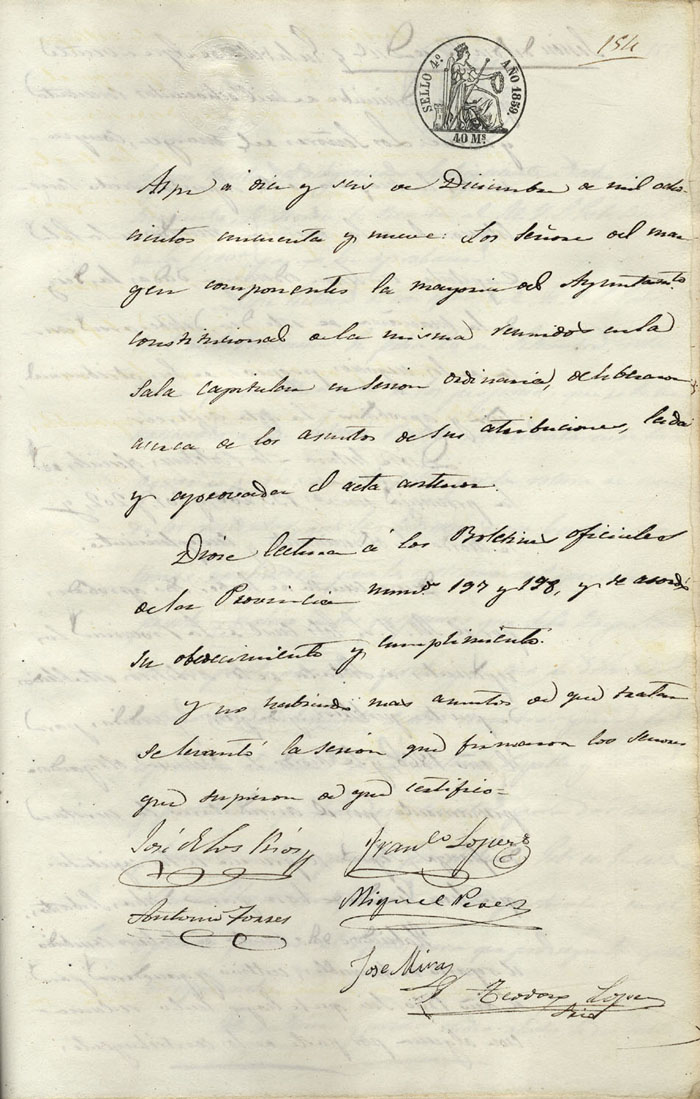 154
SELLO 4º AÑO 1859.
40 Mˢ.
Aspe á diez y seis de Diciembre de mil ocho
cientos cincuenta y nueve: Los Señores del mar
gen componentes la mayoria del Ayuntamto
constitucional de la misma reunidos en la
Sala capitular en sesion ordinaria, deliberaron
acerca de los asuntos de sus atribuciones, leida
y aprovada el acta anterior.
Dióse lectura á los Boletines oficiales
de la Provincia numos 197 y 198, y se acordó
su obedecimiento y cumplimiento.
Y no habiendo mas asuntos de que tratar
se levantó la sesion que firmaron los señores
que supieron de que certifico=
José de los Rios
Franco Lopez
Antonio Torres
Miguel Perez
Jose Mira
Teodoro Lopez
Srio